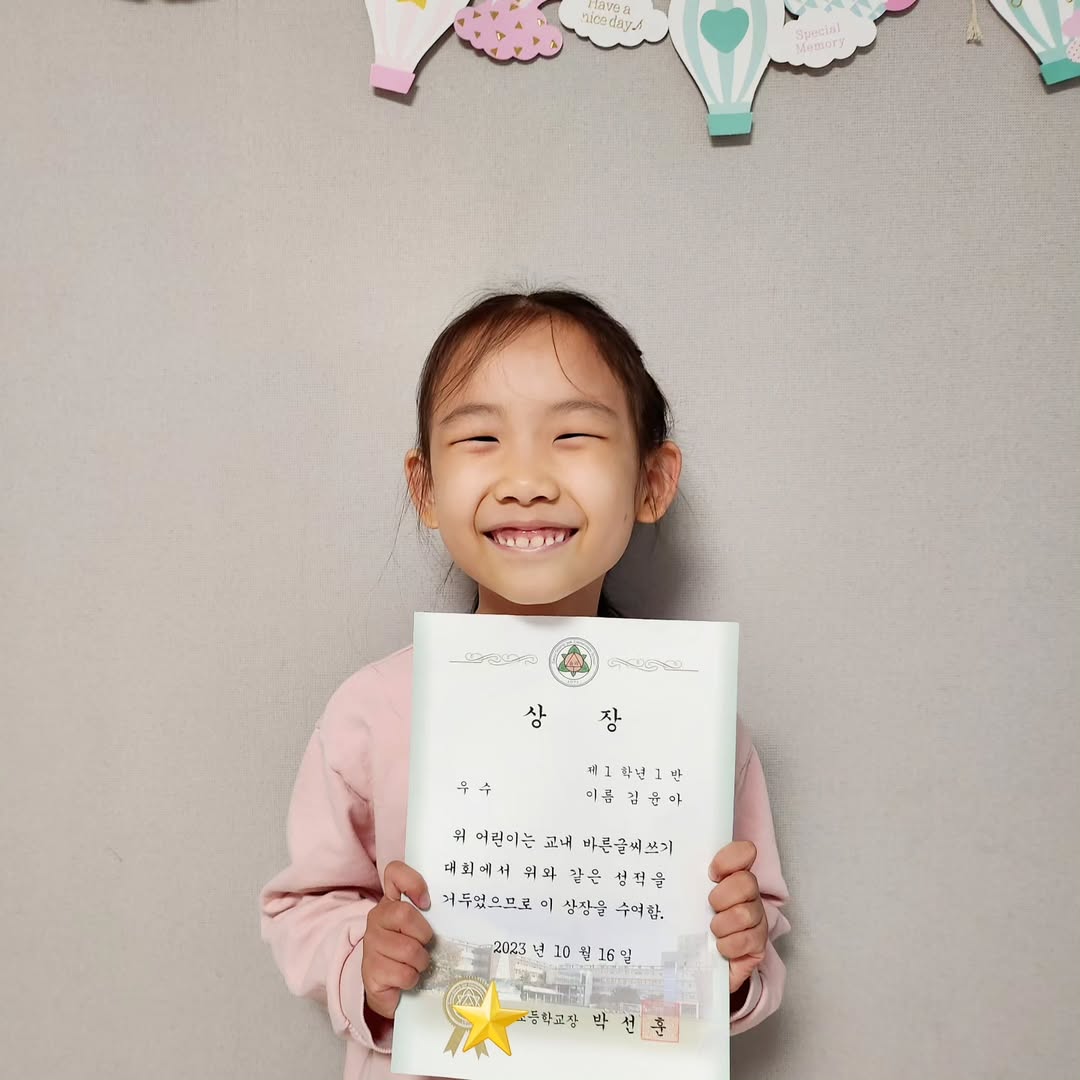 Have a
nice day♪
Special
Memory
상 장
제 1 학년 1 반
우 수
이름 김 윤 아
위 어린이는 교내 바른글씨쓰기
대회에서 위와 같은 성적을
거두었으므로 이 상장을 수여함.
2023 년 10 월 16 일
초등학교장 박 선 훈